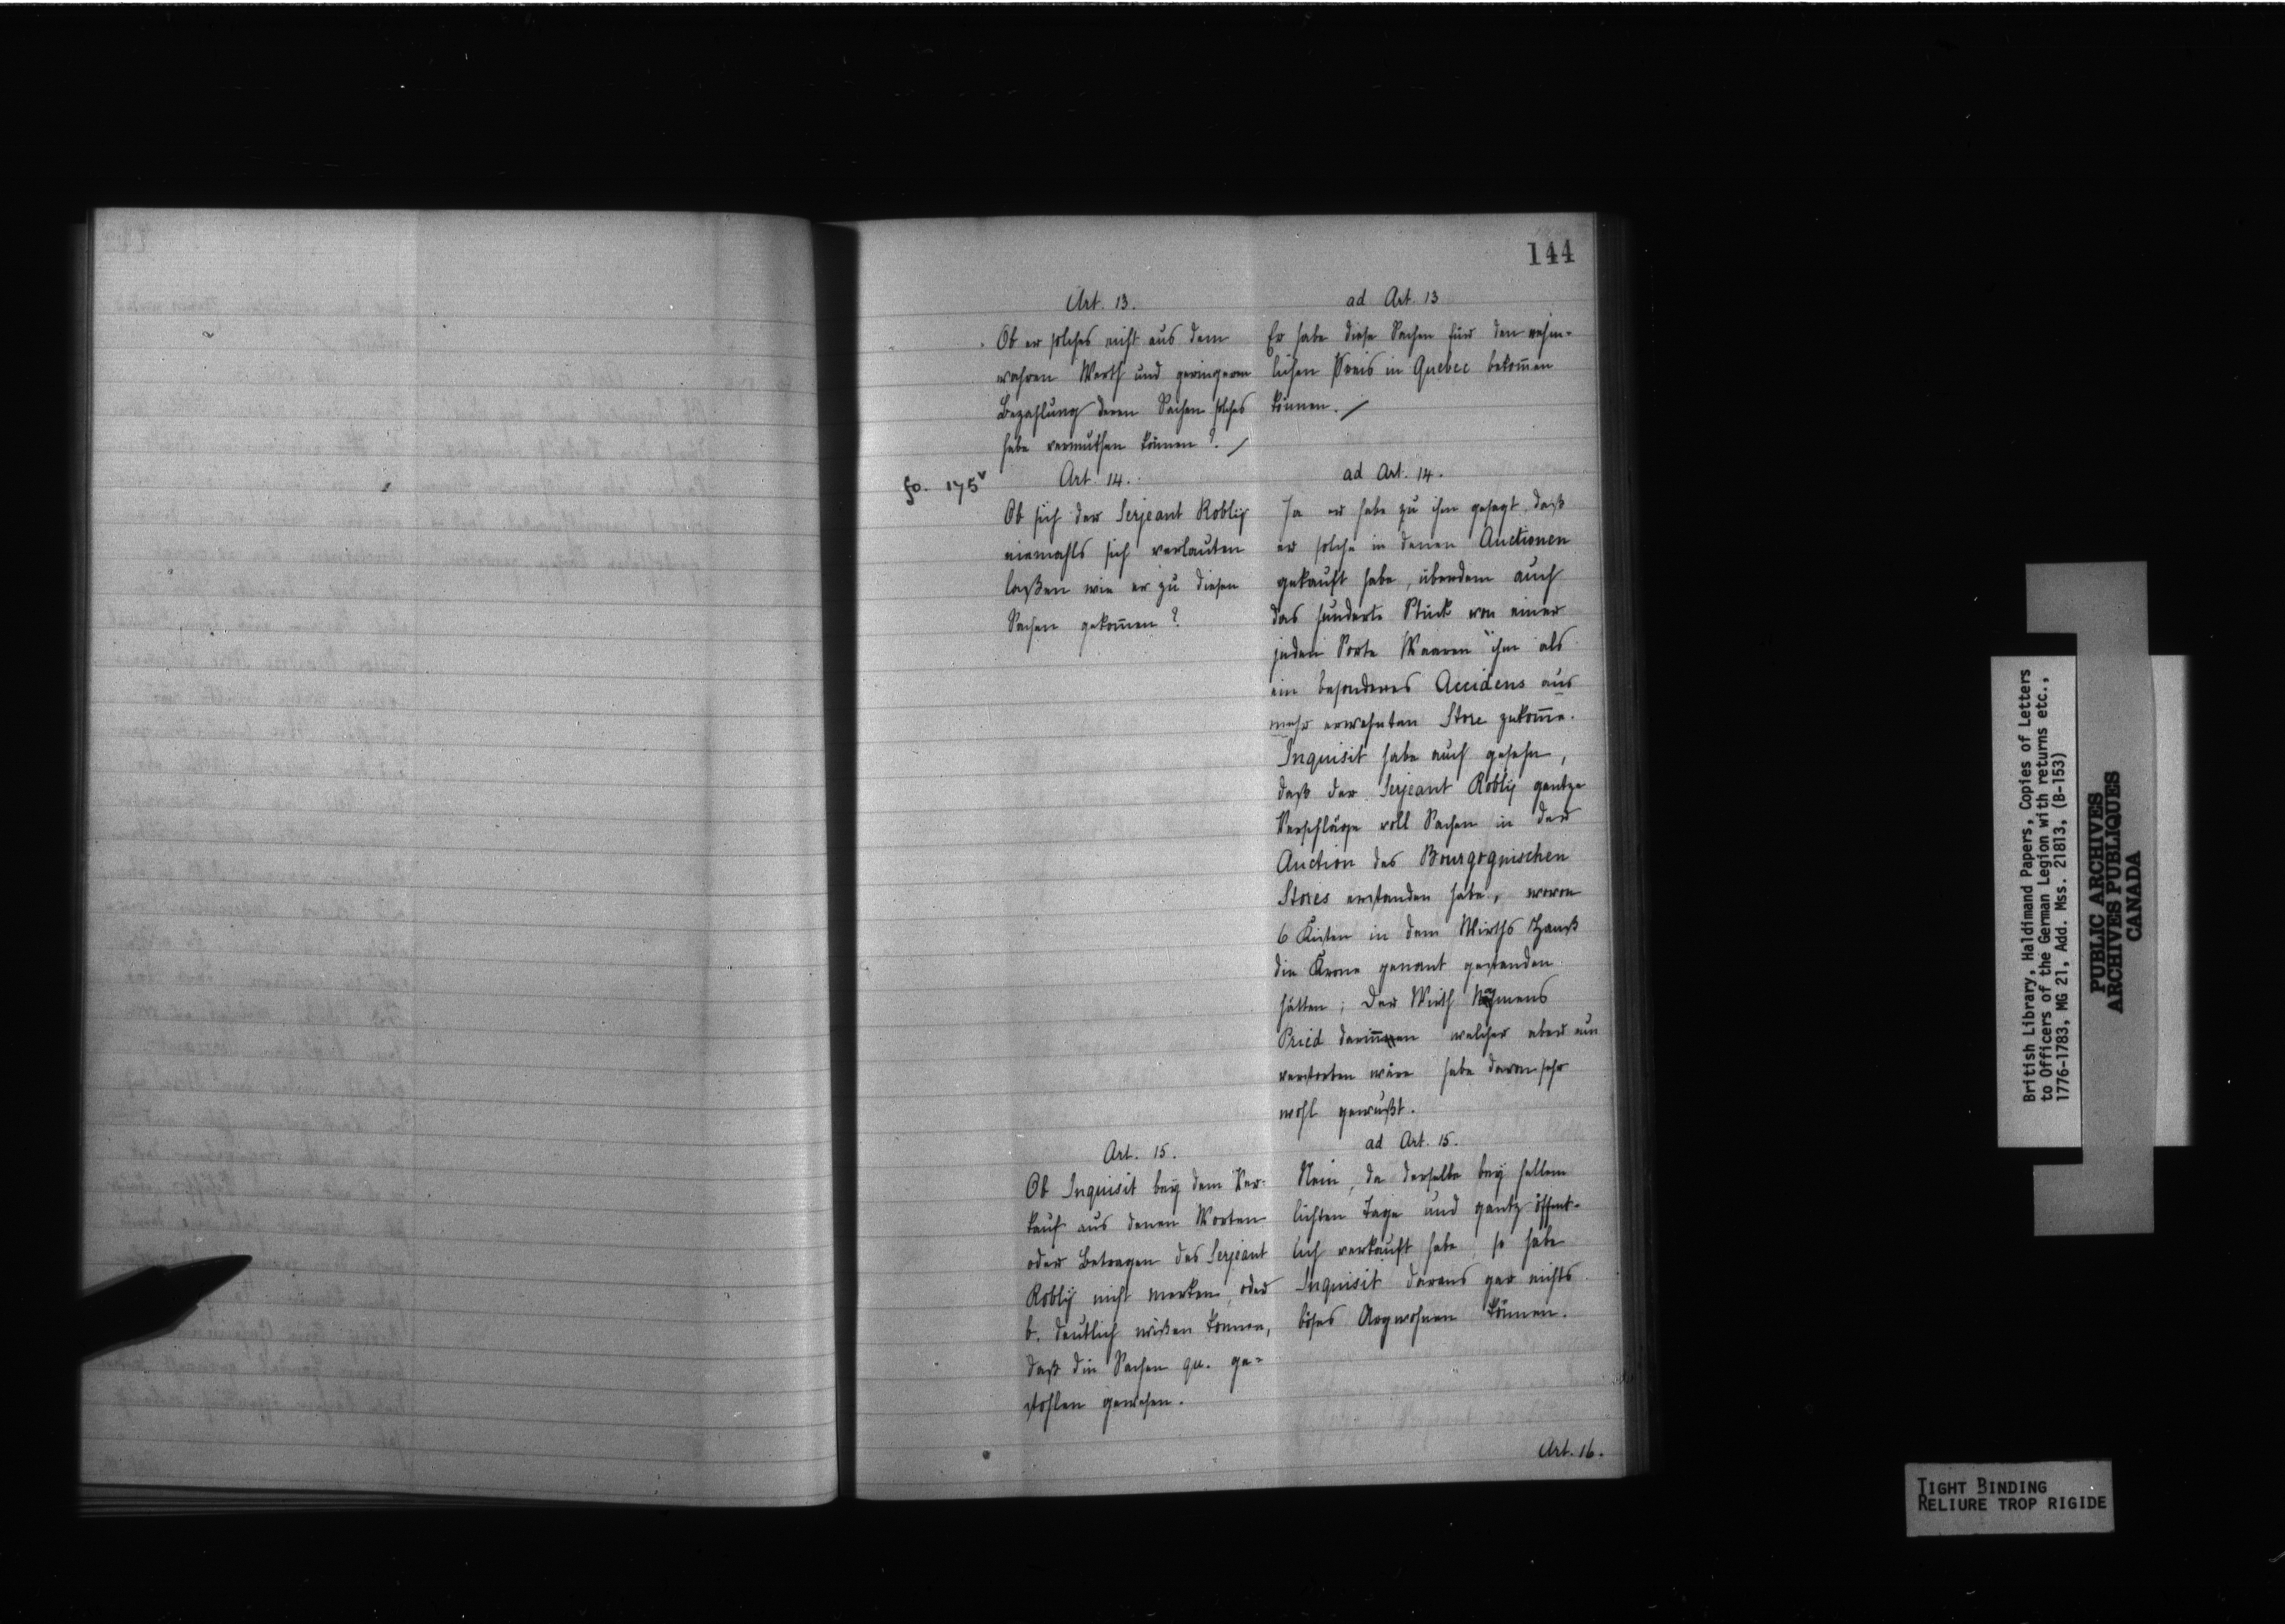 144
Art. 13.
Ob er solches nicht aus dem
wahren Werth und geringerem
Bezahlung deren Sachen solches
habe vermuthen können?
ad Art. 13
Er habe diese Sachen für den nehm-
lichen Preis in Quebec bekom̄en
können.
fo. 175v
Art. 14.
Ob sich der Serjeant Roblij
niemahls sich verlauten
laßen wie er zu diesen
Sachen gekom̄en?
ad Art. 14.
Ja er habe zu ihm gesagt, daß
er solche in denen Auctionen
gekauft habe, überdem auch
das hunderte Stück von einer
jeden Sorte Waaren ihm als
ein besonderes Accidens aus
mehr erwehnten Store zukom̄e.
Inquisit habe auch gesehn,
daß der Serjeant Roblij gantze
Verschläge voll Sachen in der
Auction des Bourgognischen
Stores erstanden habe, wovon
6 Kisten in dem Wirths Hauß
die Krone genant gestanden
hätten; der Wirth Nahmens
Pried welcher aber nun
verstorben wäre habe davon sehr
wohl gewußt.
Art. 15.
Ob Inquisit bey dem Ver-
kauf aus denen Worten
oder Betragen des Serjeant
Roblij nicht merken, oder
b. deutlich wißen können,
daß die Sachen qu. ge-
stohlen gewesen.
ad Art. 15.
Nein, da derselbe bey hellem
lichten Tage und gantz öffent-
lich verkauft habe, so habe
Inquisit daraus gar nichts
böses Argwohnen können.
Art. 16.
British Library, Haldimand Papers, Copies of Letters
to Officers of the German Legion with returns etc.,
1776-1783, MG 21, Add. Mss. 21813, (B-153)
PUBLIC ARCHIVES
ARCHIVES PUBLIQUES
CANADA
TIGHT BINDING
RELIURE TROP RIGIDE